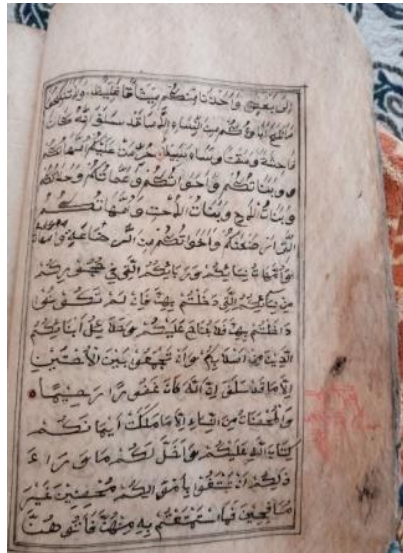 الى بعض واخذن منكم ميثاقا غليظا ولا تنكحوا
ما نكح اباؤكم من النساء الا ما قد سلف انه كان
فاحشة ومقتا وساء سبيلا حرمت عليكم امهاتكم
وبناتكم واخواتكم وعماتكم وخالاتكم
وبنات الاخ وبنات الاخت وامهاتكم
التي ارضعنكم واخواتكم من الرضاعة
وامهات نسائكم وربائبكم التي في حجوركم
من نسائكم التي دخلتم بهن فان لم تكونوا
دخلتم بهن فلا جناح عليكم وحلائل ابنائكم
الذين من اصلابكم وان تجمعوا بين الاختين
الا ما قد سلف ان الله كان غفورا رحيما
والمحصنات من النساء الا ما ملكت ايمانكم
كتاب الله عليكم واحل لكم ما وراء
ذلكم ان تبتغوا باموالكم محصنين غير
مسافحين فما استمتعتم به منهن فاتوهن